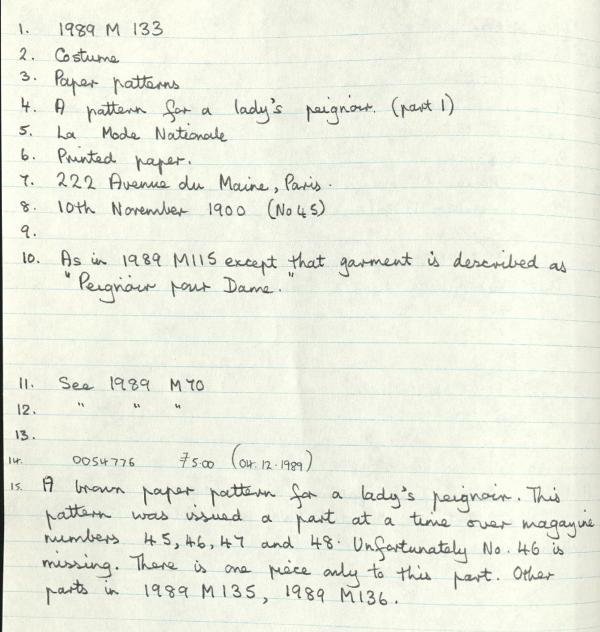 1. 1989 M 133
2. Costume
3. Paper patterns
4. A pattern for a lady's peignoir. (part 1)
5. La Mode Nationale
6. Printed paper.
7. 222 Avenue du Maine, Paris.
8. 10th November 1900 (No 45)
9.
10. As in 1989 M115 except that garment is described as
"Peignoir pour Dame."
11. See 1989 M70
12. " " "
13.
14. 0054776 75.00 (04.12.1989)
15. A brown paper pattern for a lady's peignoir. This
pattern was issued a part at a time over magazine
numbers 45, 46, 47 and 48. Unfortunately No. 46 is
missing. There is one piece only to this part. Other
parts in 1989 M135, 1989 M136.